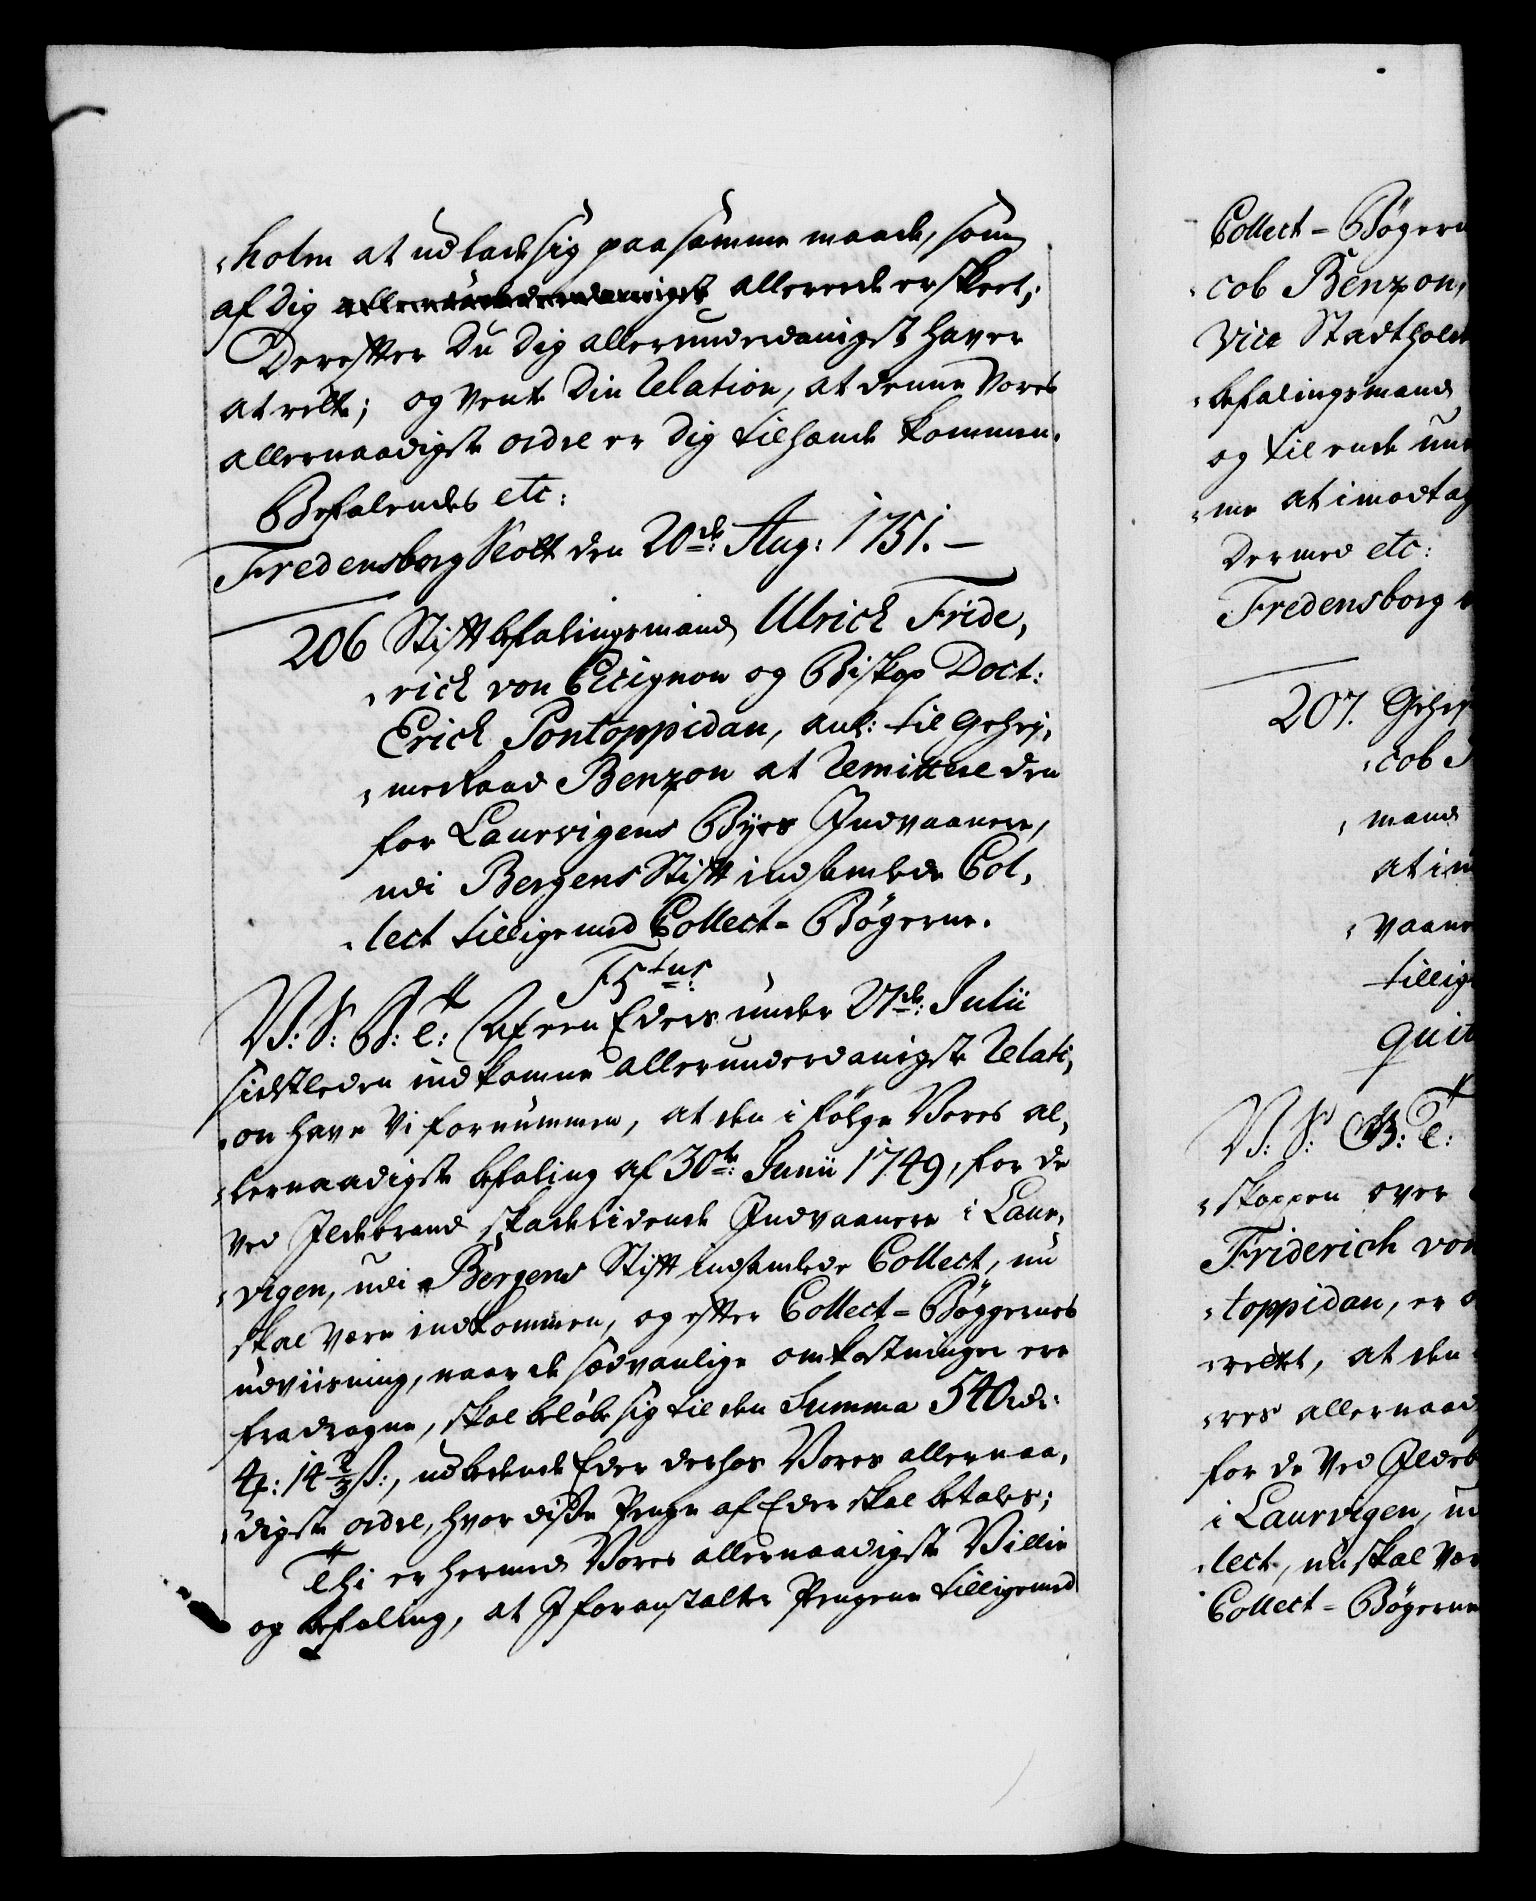 "holm at udlade sig paa samme maade, som
af dig allerunderdanigst allereede er skeet;
Derefter Du dig allerunderdanigst haver
at rette; og vente Din Relation, at denne Vores
allernaadigste ordre er dig tilhænde kommen.
Befalendes etc:
Fredensborg Slott den 20de: Aug: 1751. —
206 Stiftbefalingsmand Ulrich Fride,
"rich von Cicignon og Biskop Doct:
Erich Pontoppidan, anl: til Gehej,
"meRaad Benzon at Remittere den
for Laurvigens Byes Indvaanere,
udi Bergens Stift indsamlede Col,
"lect tilligemed Collect-Bøgerne.
F5tus
V: S: G: T: Af een Eders under 27de: Julii
sidstleden indkomne allerunderdanigste Relati,
"on have Vi fornummen, at den i følge Vores al,
"lernaadigste befaling af 30te: Junii 1749, for de
ved Ildebrand skadelidende Indvaanere i Laur,
"vigen, udi Bergens Stift indsamlede Collect, nu
skal være indkommen, og efter Collect-Bøggernes
udviisning, naar de sædvanlige omkostninger ere
fradragne, skal beløbe sig til den Summa 540 rdr:
4 ƒ: 14 2/3 ß:, udbedende Eder derhos Vores allernaa,
"digste ordre, hvor diße Penge af Eder skal betales;
Thi er hermed Vores allernaadigste Villie
og befaling, at I foranstalter Pengene tilligemed
Collect-Bøgern
"cob Benzon,
Vice Stadthold
"befalingsmand
og til ende
"me at imodtag
Dermed etc:
Fredensborg
207. Gehej
"cob
"mand
at im
"vaane
tillig
quit
V: S: G: T:
"skoppen over
Friderich von
"toppidan, er
"rettet, at den
"res allernaad
for de ved Ildeb
i Laurvigen, ud
"lect, nu skal væ
Collect-Bøgerne